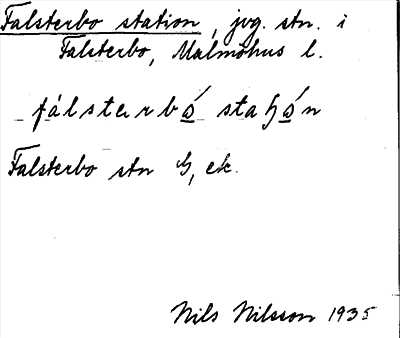 Falsterbo station, jvg. stn. i
Falsterbo, Malmöhus l.
fálsterbó staɧón
Falsterbo stn G, ek.
Nils Nilsson 1935